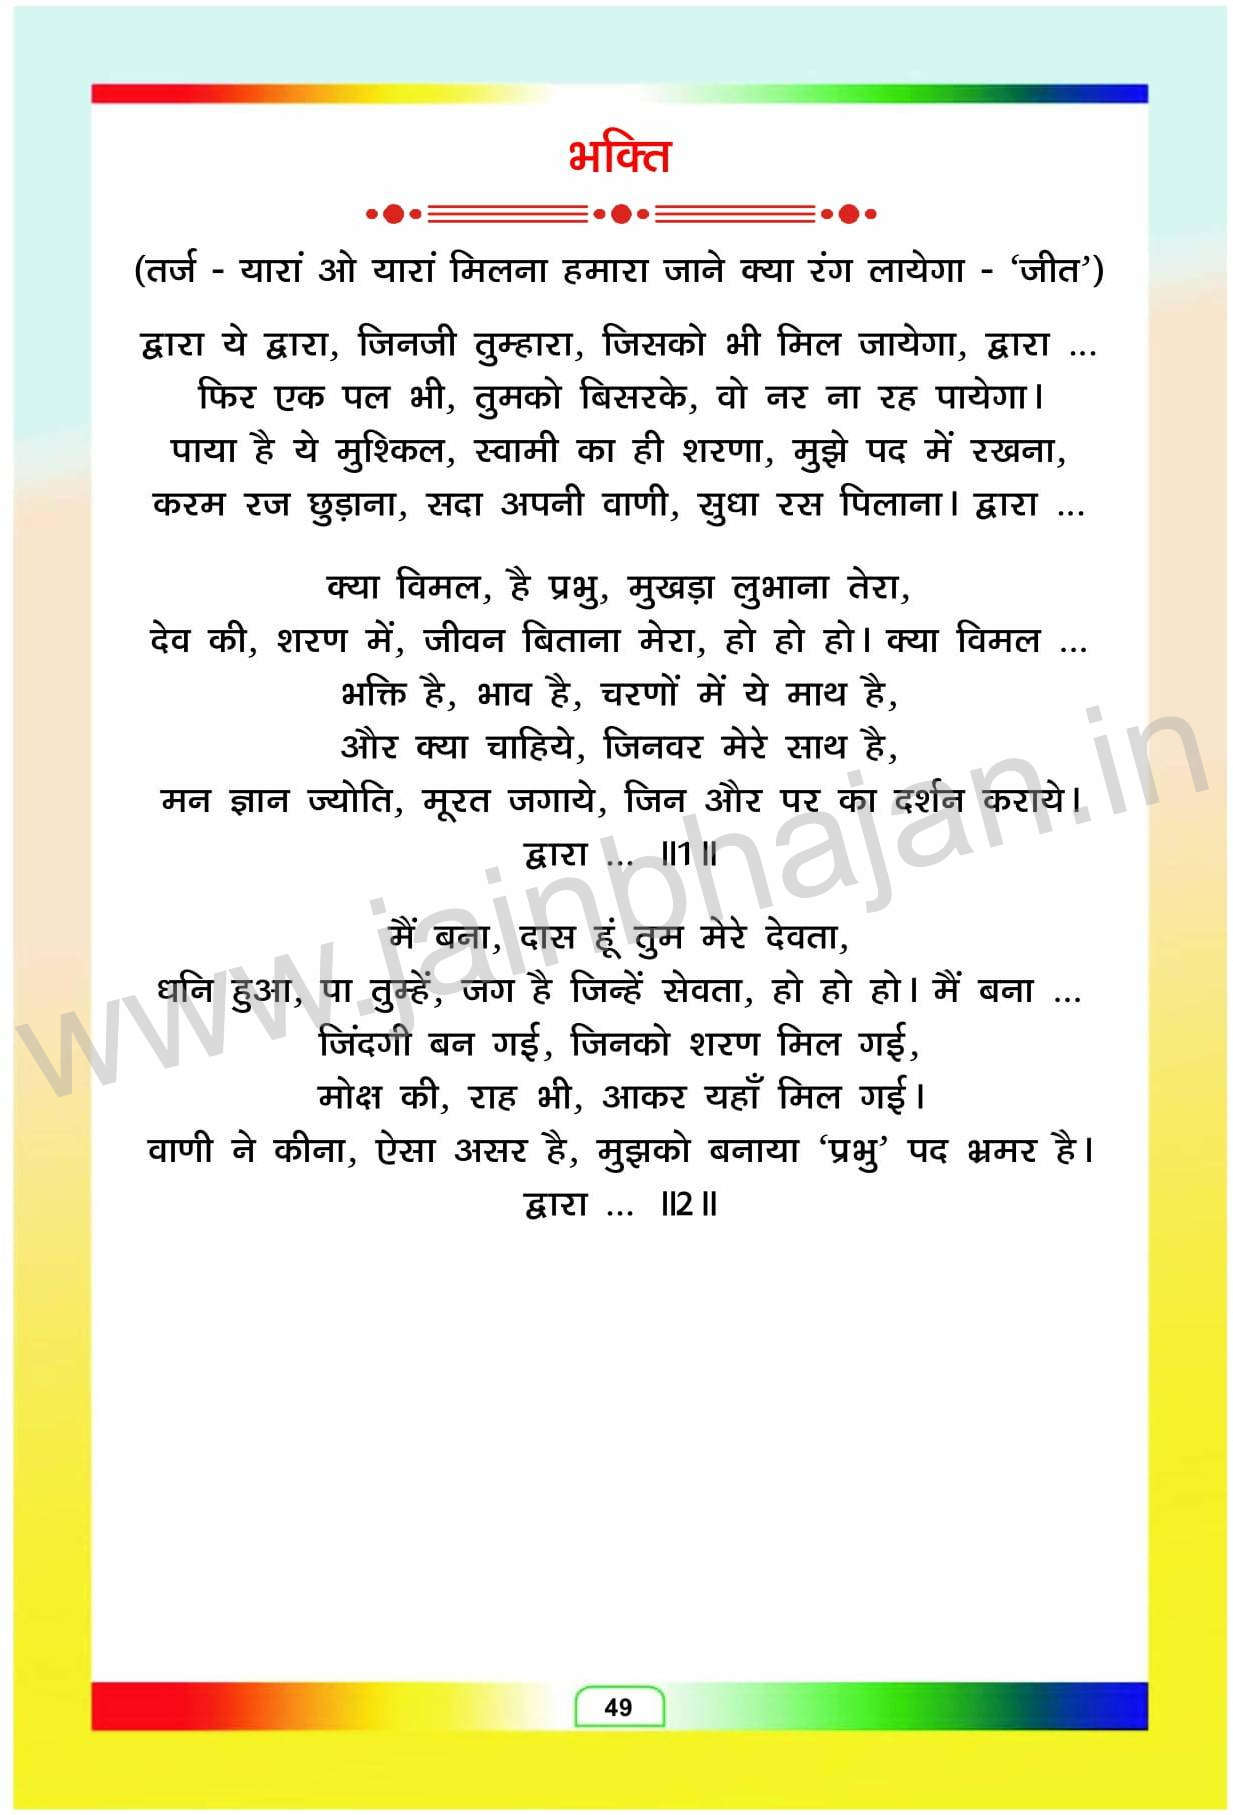 भक्ति
(तर्ज - यारां ओ यारां मिलना हमारा जाने क्या रंग लायेगा - ‘जीत’)
द्वारा ये द्वारा, जिनजी तुम्हारा, जिसको भी मिल जायेगा, द्वारा ...
फिर एक पल भी, तुमको बिसरके, वो नर ना रह पायेगा।
पाया है ये मुश्किल, स्वामी का ही शरणा, मुझे पद में रखना,
करम रज छुड़ाना, सदा अपनी वाणी, सुधा रस पिलाना। द्वारा ...
क्या विमल, है प्रभु, मुखड़ा लुभाना तेरा,
देव की, शरण में, जीवन बिताना मेरा, हो हो हो। क्या विमल ...
भक्ति है, भाव है, चरणों में ये माथ है,
और क्या चाहिये, जिनवर मेरे साथ है,
मन ज्ञान ज्योति, मूरत जगाये, जिन और पर का दर्शन कराये।
द्वारा ... ॥1॥
मैं बना, दास हूं तुम मेरे देवता,
धनि हुआ, पा तुम्हें, जग है जिन्हें सेवता, हो हो हो। मैं बना ...
जिंदगी बन गई, जिनको शरण मिल गई,
मोक्ष की, राह भी, आकर यहाँ मिल गई।
वाणी ने कीना, ऐसा असर है, मुझको बनाया ‘प्रभु’ पद भ्रमर है।
द्वारा ... ॥2॥
www.jainbhajan.in
49